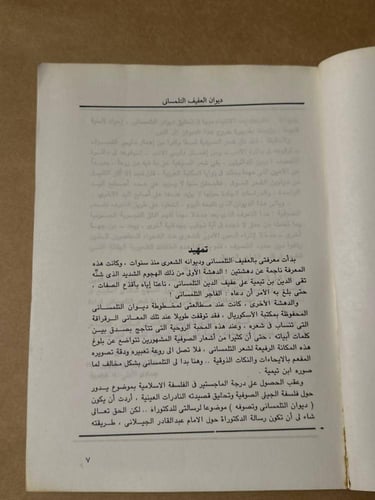 ديوان العفيف التلمسانى
تمهيد
بدأت معرفتي بالعفيف التلمسانى وديوانه الشعرى منذ سنوات ، وكانت هذه
المعرفة ناجمة عن دهشتين ! الدهشة الأولى من ذلك الهجوم الشديد الذى شنَّه
تقى الدين بن تيمية على عفيف الدين التلمسانى ، ناعتا إياه بأقذع الصفات ،
حتى بلغ به الأمر أن دعاه : الفاجر التلمسانى !
والدهشة الأخرى ، كانت عند مطالعتى لمخطوطة ديوان التلمسانى
المحفوظة بمكتبة الاسكوريال ، فقد توقفت طويلا عند تلك المعانى الرقراقة
التى تنساب فى شعره ، وعند هذه المحبة الروحية التى تتأجج بصدق بين
كلمات أبياته ، حتى أن كثيرا من أشعار الصوفية المشهورين تتواضع عن بلوغ
هذه المكانة الرفيعة لشعر التلمسانى ، فلا تصل الى روعة تعبيره ودقة تصويره
المفعم بالايحاءات والنكات الذوقية .. وهنا بدا لى التلمسانى بشكل مخالف لما
صوره ابن تيمية .
وعقب الحصول على درجة الماجستير فى الفلسفة الاسلامية بموضوع يدور
حول فلسفة الجيلى الصوفية وتحقيق قصيدته النادرات العينية ، أردت أن يكون
( ديوان التلمسانى وتصوفه ) موضوعا لرسالتى للدكتوراة .. لكن الحق تعالى
شاء لى أن تكون رسالة الدكتوراة حول الامام عبدالقادر الجيلانى ، طريقته
٧